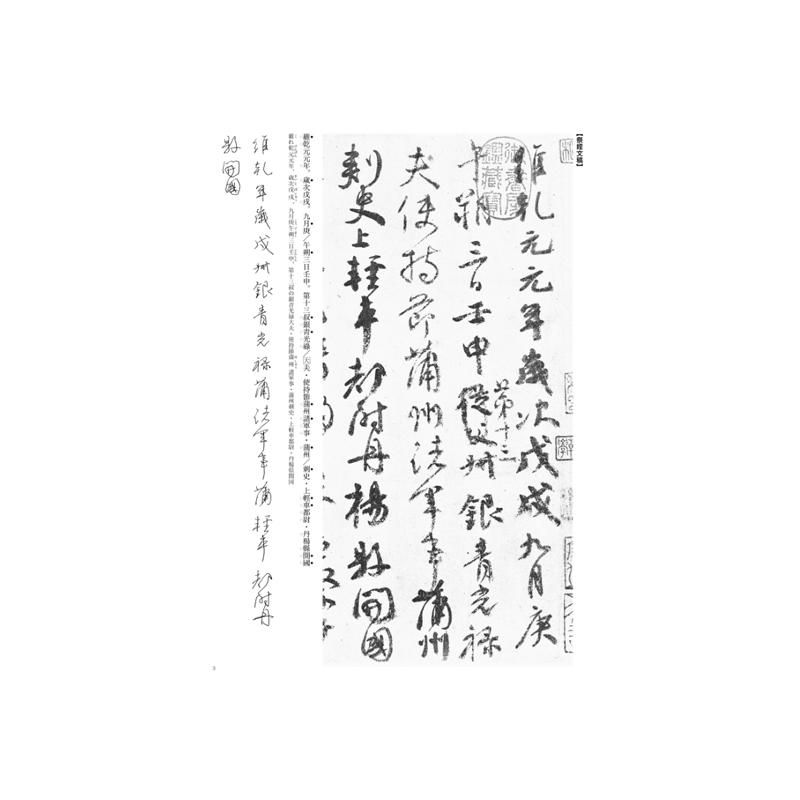 【祭姪文稿】
維乾元元年歲次戊戌九月庚
午朔三日壬申從父叔銀青光祿
第十三
夫使持節蒲州諸軍事蒲州
刺史上輕車都尉丹楊縣開國
維乾元元年。歲次戊戌。九月庚/午朔三日壬申。第十三叔銀青光祿/大夫・使持節蒲州諸軍事・蒲州/刺史・上輕車都尉・丹楊縣開國
維れ乾元元年、歳次戊戌、九月庚午朔、三日壬申、第十三叔の銀青光禄大夫・使持節蒲州諸軍事・蒲州刺史・上軽車都尉・丹楊県開国
維乾年歲戊州銀青光祿蒲諸軍事蒲輕車都尉丹
縣開國
3